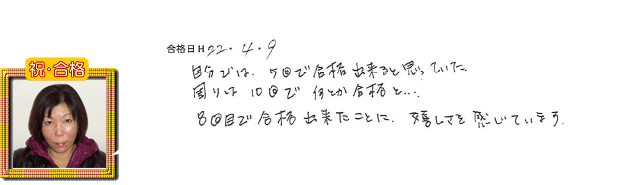 祝・合格
合格日H22・4・9
自分では、5回で合格出来ると思っていた。
周りは10回で何とか合格と…
8回目で合格出来たことに、嬉しさを感じています。